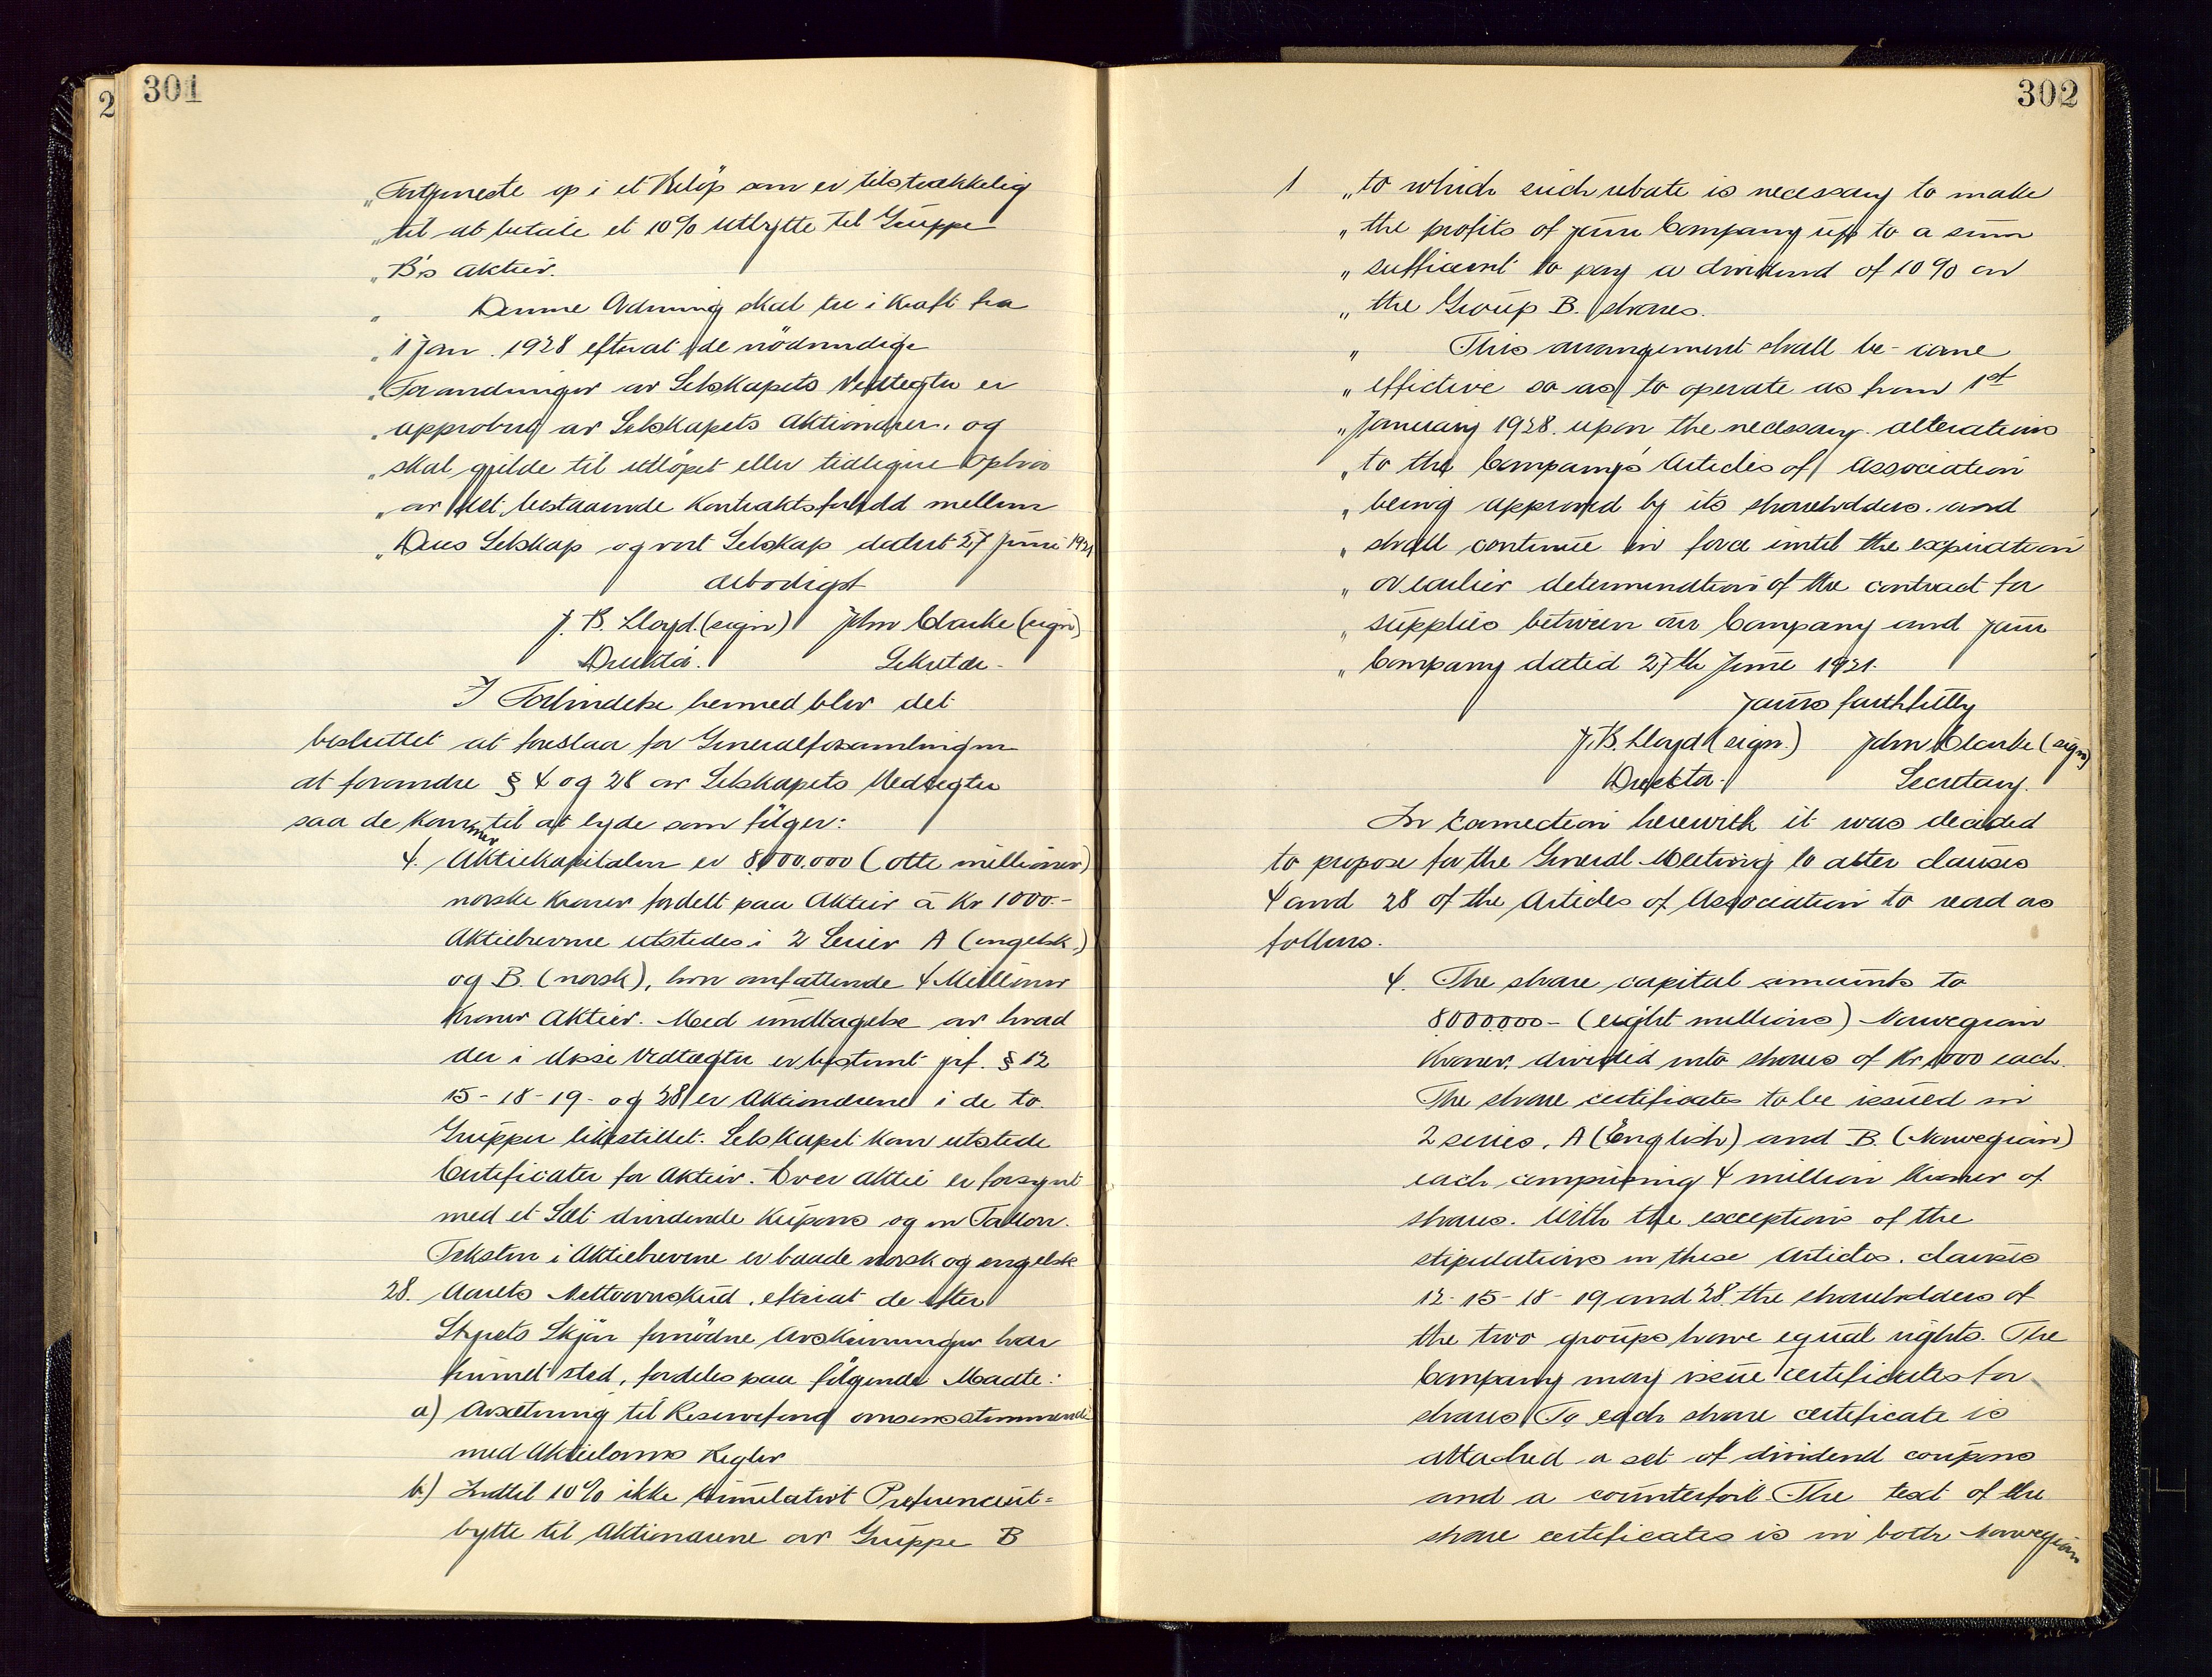 301
„Fortjeneste op i et Belöp som er tilstrækkelig
„til at betale et 10% Utbytte til Gruppe
„B's Aktier.
„ Denne Ordning skal tre i Kraft fra
„1 Jan. 1928 efterat de nödvendige
„Forandringer av Selskapets Vedtegter er
„approbert av Selskapets Aktionærer, og
„skal gjelde til utlöpet eller tidligere Ophör
„av det bestaaende Kontraktsforhold mellem
„Deres Selskap og vort Selskap datert 27 Juni 1921
ærbødigst
J. B. Lloyd (sign) John Clarke (sign)
Direktör. Sekretær-
I Forbindelse hermed blev det
besluttet at foreslaa for Generalforsamlingen
at forandre § 4 og 28 av Selskapets Vedtegter
saa de kommer til at lyde som fölger:
4. Aktiekapitalen er 8.000.000 (otte millioner)
norske Kroner fordelt paa Aktier à Kr 1000.-
Aktiebrevene utstedes i 2 Serier A (engelsk)
og B. (norsk), hver omfattende 4 Millioner
Kroner Aktier. Med undtagelse av hvad
der i disse Vedtægter er bestemt jrf. § 12
15-18-19- og 28 er Aktionærene i de to
Grupper likestillet. Selskapet kan utstede
Certificater for Aktier. Hver Aktie er forsynt
med et Sæt dividende Kupons og en Tallon.
Teksten i Aktiebrevene er baade norsk og engelsk
28. Aarets Nettooverskud, efterat de efter
Styrets Skjön fornödne Avskrivninger har
funnet sted, fordeles paa fölgende Maate:
a) Avsætning til Reservefond overensstemmende
med Aktielovens Regler
b.) Indtil 10% ikke kumulativt Preferenceut=
bytte til Aktionærene av Gruppe B
2
302
1 „to which such rebate is necessary to make
„the profits of your Company up to a sum
„sufficient to pay a dividend of 10% on
„the Group B. shares.
„ This arrangement shall be-come
„effective so as to operate as from 1st
„January 1928. upon the necessary alterations
„to the Company's Articles of Association
„being approved by its shareholders. and
„shall continue in force until the expiration
„or earlier determination of the contract for
„supplies between our Company and your
„Company dated 27th June 1921.
Yours faithfully
J. B. Lloyd (sign.) John Clarke (sign)
Direktor. Secretary.
In Connection herewith it was decided
to propose for the General Meeting to alter clauses
4 and 28 of the Articles of Association to read as
follows.
4. The share capital amounts to
8000000- (eight millions) Norwegian
Kroner, divided into shares of Kr 1000 each.
The share certificates to be issued in
2 series, A (English) and B. (Norwegian)
each comprising 4 million Kroner of
shares. With the exception of the
stipulations in these Articles. clauses
12-15-18-19 and 28. the shareholders of
the two groups have equal rights. The
Company may issue certificates for
shares. To each share certificate is
attached a set of dividend coupons
and a counterfoil The text of the
share certificates is in both Norwegian